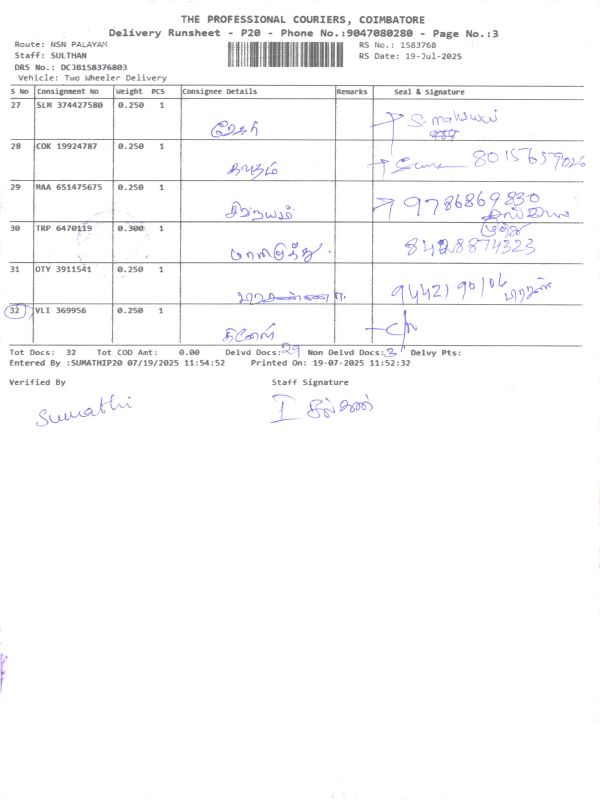 THE PROFESSIONAL COURIERS, COIMBATORE
Delivery Runsheet - P20 - Phone No.:9047080280 - Page No.:3
Route: NSN PALAYAM RS No.: 1583768
Staff: SULTHAN RS Date: 19-Jul-2025
DRS No.: DCJB158376803
Vehicle: Two Wheeler Delivery
S No Consignment No Weight PCS Consignee Details Remarks Seal & Signature
27 SLM 374427580 0.250 1
28 COK 19924787 0.250 1
8015659026
29 MAA 651475675 0.250 1
9786869830
30 TRP 6470119 0.300 1
முத்து
மாரிமுத்து 8428874323
31 OTY 3911541 0.250 1
32 VLI 369956 0.250 1
தினேஷ்
Tot Docs: 32 Tot COD Amt: 0.00 Delvd Docs: 29 Non Delvd Docs: 3 Delvy Pts:
Entered By :SUMATHIP20 07/19/2025 11:54:52 Printed On: 19-07-2025 11:52:32
Verified By Staff Signature
Sumathi